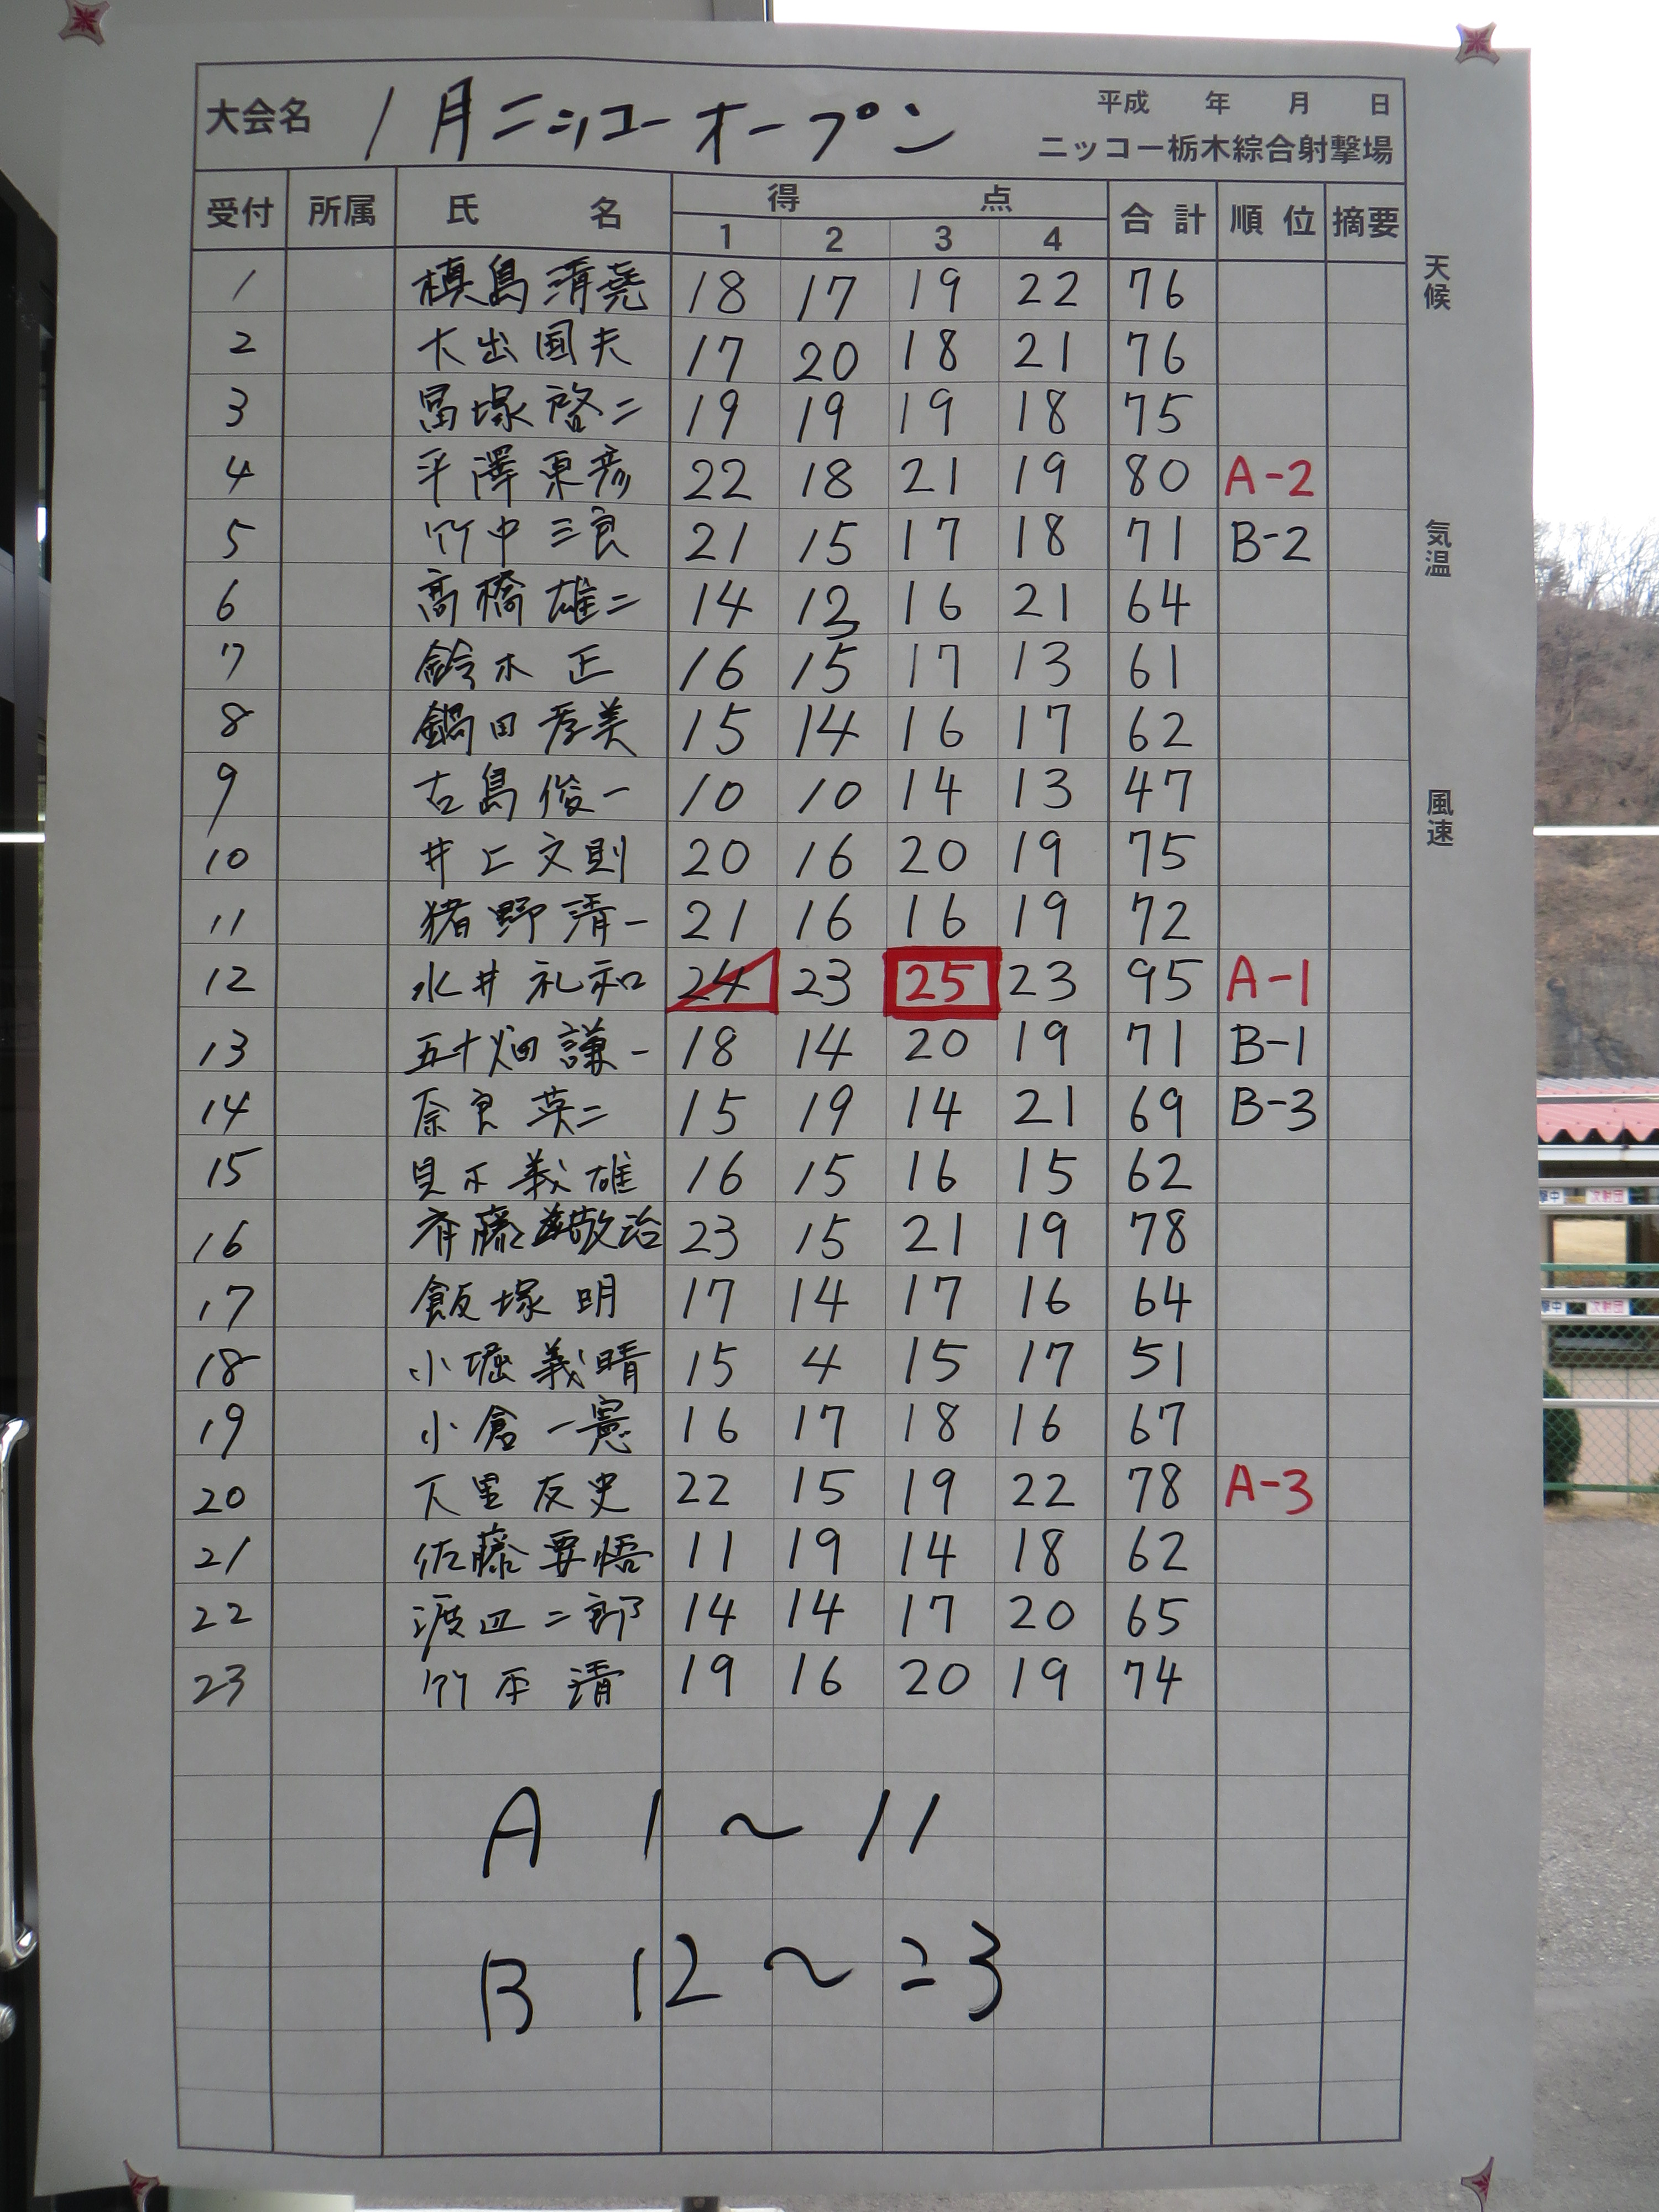 大会名 1月ニッコーオープン 平成 年 月 日
ニッコー栃木綜合射撃場
受付 所属 氏 名 得 点 合計 順位 摘要
1 2 3 4
1 槙島清堯 18 17 19 22 76
2 大出国夫 17 20 18 21 76
3 冨塚啓二 19 19 19 18 75
4 平澤東彦 22 18 21 19 80 A-2
5 竹中三良 21 15 17 18 71 B-2
6 高橋雄二 14 13 16 21 64
7 鈴木正 16 15 17 13 61
8 鍋田孝美 15 14 16 17 62
9 古島俊一 10 10 14 13 47
10 井上文則 20 16 20 19 75
11 猪野清一 21 16 16 19 72
12 水井礼和 24 23 25 23 95 A-1
13 五十畑謙一 18 14 20 19 71 B-1
14 奈良英二 15 19 14 21 69 B-3
15 義雄 16 15 16 15 62
16 斉藤敬治 23 15 21 19 78
17 飯塚明 17 14 17 16 64
18 小堀義晴 15 4 15 17 51
19 小倉一憲 16 17 18 16 67
20 友史 22 15 19 22 78 A-3
21 佐藤要悟 11 19 14 18 62
22 渡辺二郎 14 14 17 20 65
23 清 19 16 20 19 74
A 1～11
B 12～23
天候
気温
風速
撃中 次射団
撃中 次射団